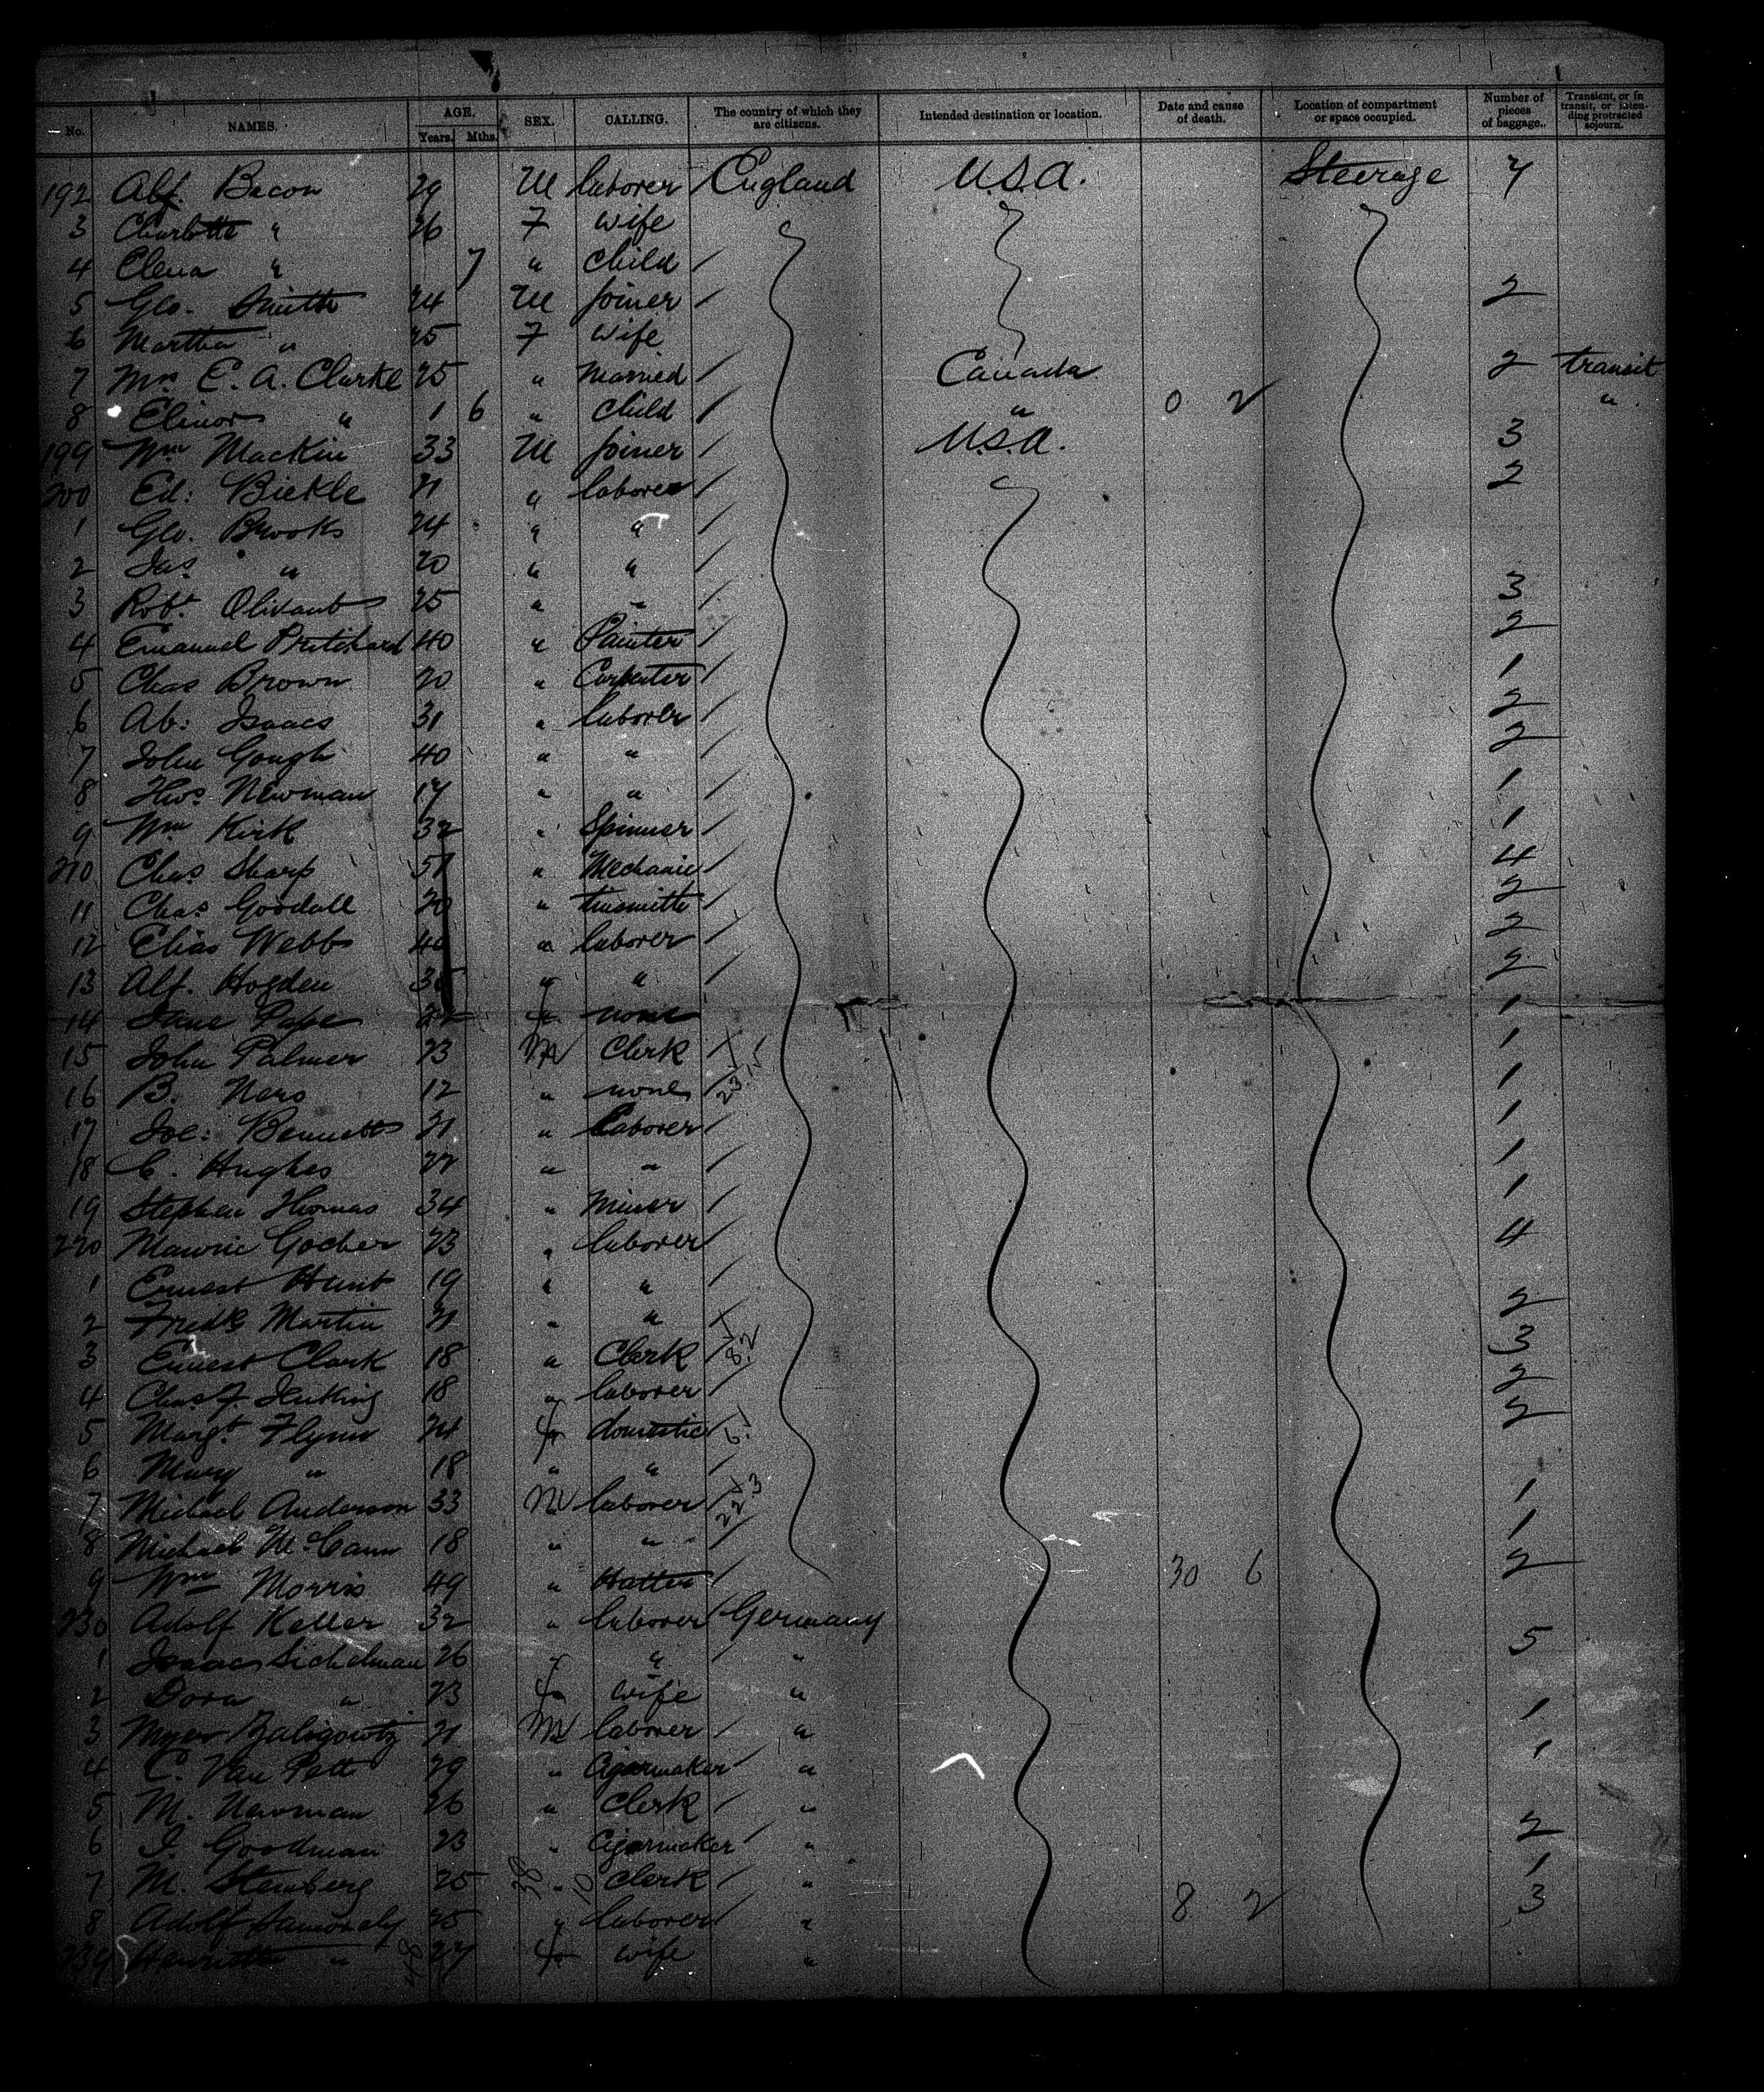 No. NAMES. AGE. Years. Mths. SEX. CALLING. The country of which they are citizens. Intended destination or location. Date and cause of death. Location of compartment or space occupied. Number of pieces of baggage. Transient, or in transit, or intending protracted sojourn.
192 Alf. Bacon 29 M laborer England U.S.A. Steerage 7
3 Charlotte " 26 F wife
4 " 7 " Child
5 Geo. Smith 24 M joiner 2
6 Martha " 25 F wife
7 Mrs E. A. Clarke 25 " Married Canada 2 transit
8 Elinor " 1 6 " Child " 0 2 "
199 Wm Mackin 33 M joiner U.S.A. 3
200 Ed: Bickle 21 " laborer 2
1 Geo. Brooks 24 " "
2 Jas " 20 " "
3 Robt Olivant 25 " " 3
4 Emanuel Pritchard 40 " Painter 2
5 Chas Brown 20 " Carpenter 1
6 Ab: Isaacs 31 " laborer 2
7 John Gough 40 " " 2
8 Thos Newman 17 " " 1
9 Wm Kirk 32 " Spinner 1
210 Chas Sharp 51 " Mechanic 4
11 Chas Goodall 20 " tinsmith 2
12 Elias Webb 40 " laborer 2
13 Alf. Hogden 35 " " 2
14 Pape 22 F none 1
15 John Palmer 23 M Clerk 1
16 B. 12 " none 1
17 Joe: Bennett 21 " Laborer 1
18 C. Hughes 22 " " 1
19 Stephen Thomas 34 " Miner 1
220 Gocher 23 " laborer 4
1 Ernest Hunt 19 " "
2 Fredk Martin 21 " " 2
3 Ernest Clark 18 " Clerk 8.2 3
4 Chas J. Jenkins 18 " laborer 2
5 Margt Flynn 24 F domestic 6.1 2
6 Mary " 18 " "
7 Michael Anderson 33 M laborer 22 3 1
8 Michael McCann 18 " " 1
9 Wm Morris 49 " Hatter 30 6 2
230 Adolf Keller 32 " laborer Germany
1 Isaac Sichelman 26 " " " 5
2 Dora " 23 F wife "
3 21 M laborer " 1
4 C. Van Patt 29 " Cigarmaker " 1
5 M. Newman 26 " Clerk "
6 I. Goodman 23 " Cigarmaker " 2
7 M. Steinberg 25 " Clerk " 1
8 Adolf 25 " laborer " 8 2 3
239 Henrietta " 27 F wife "